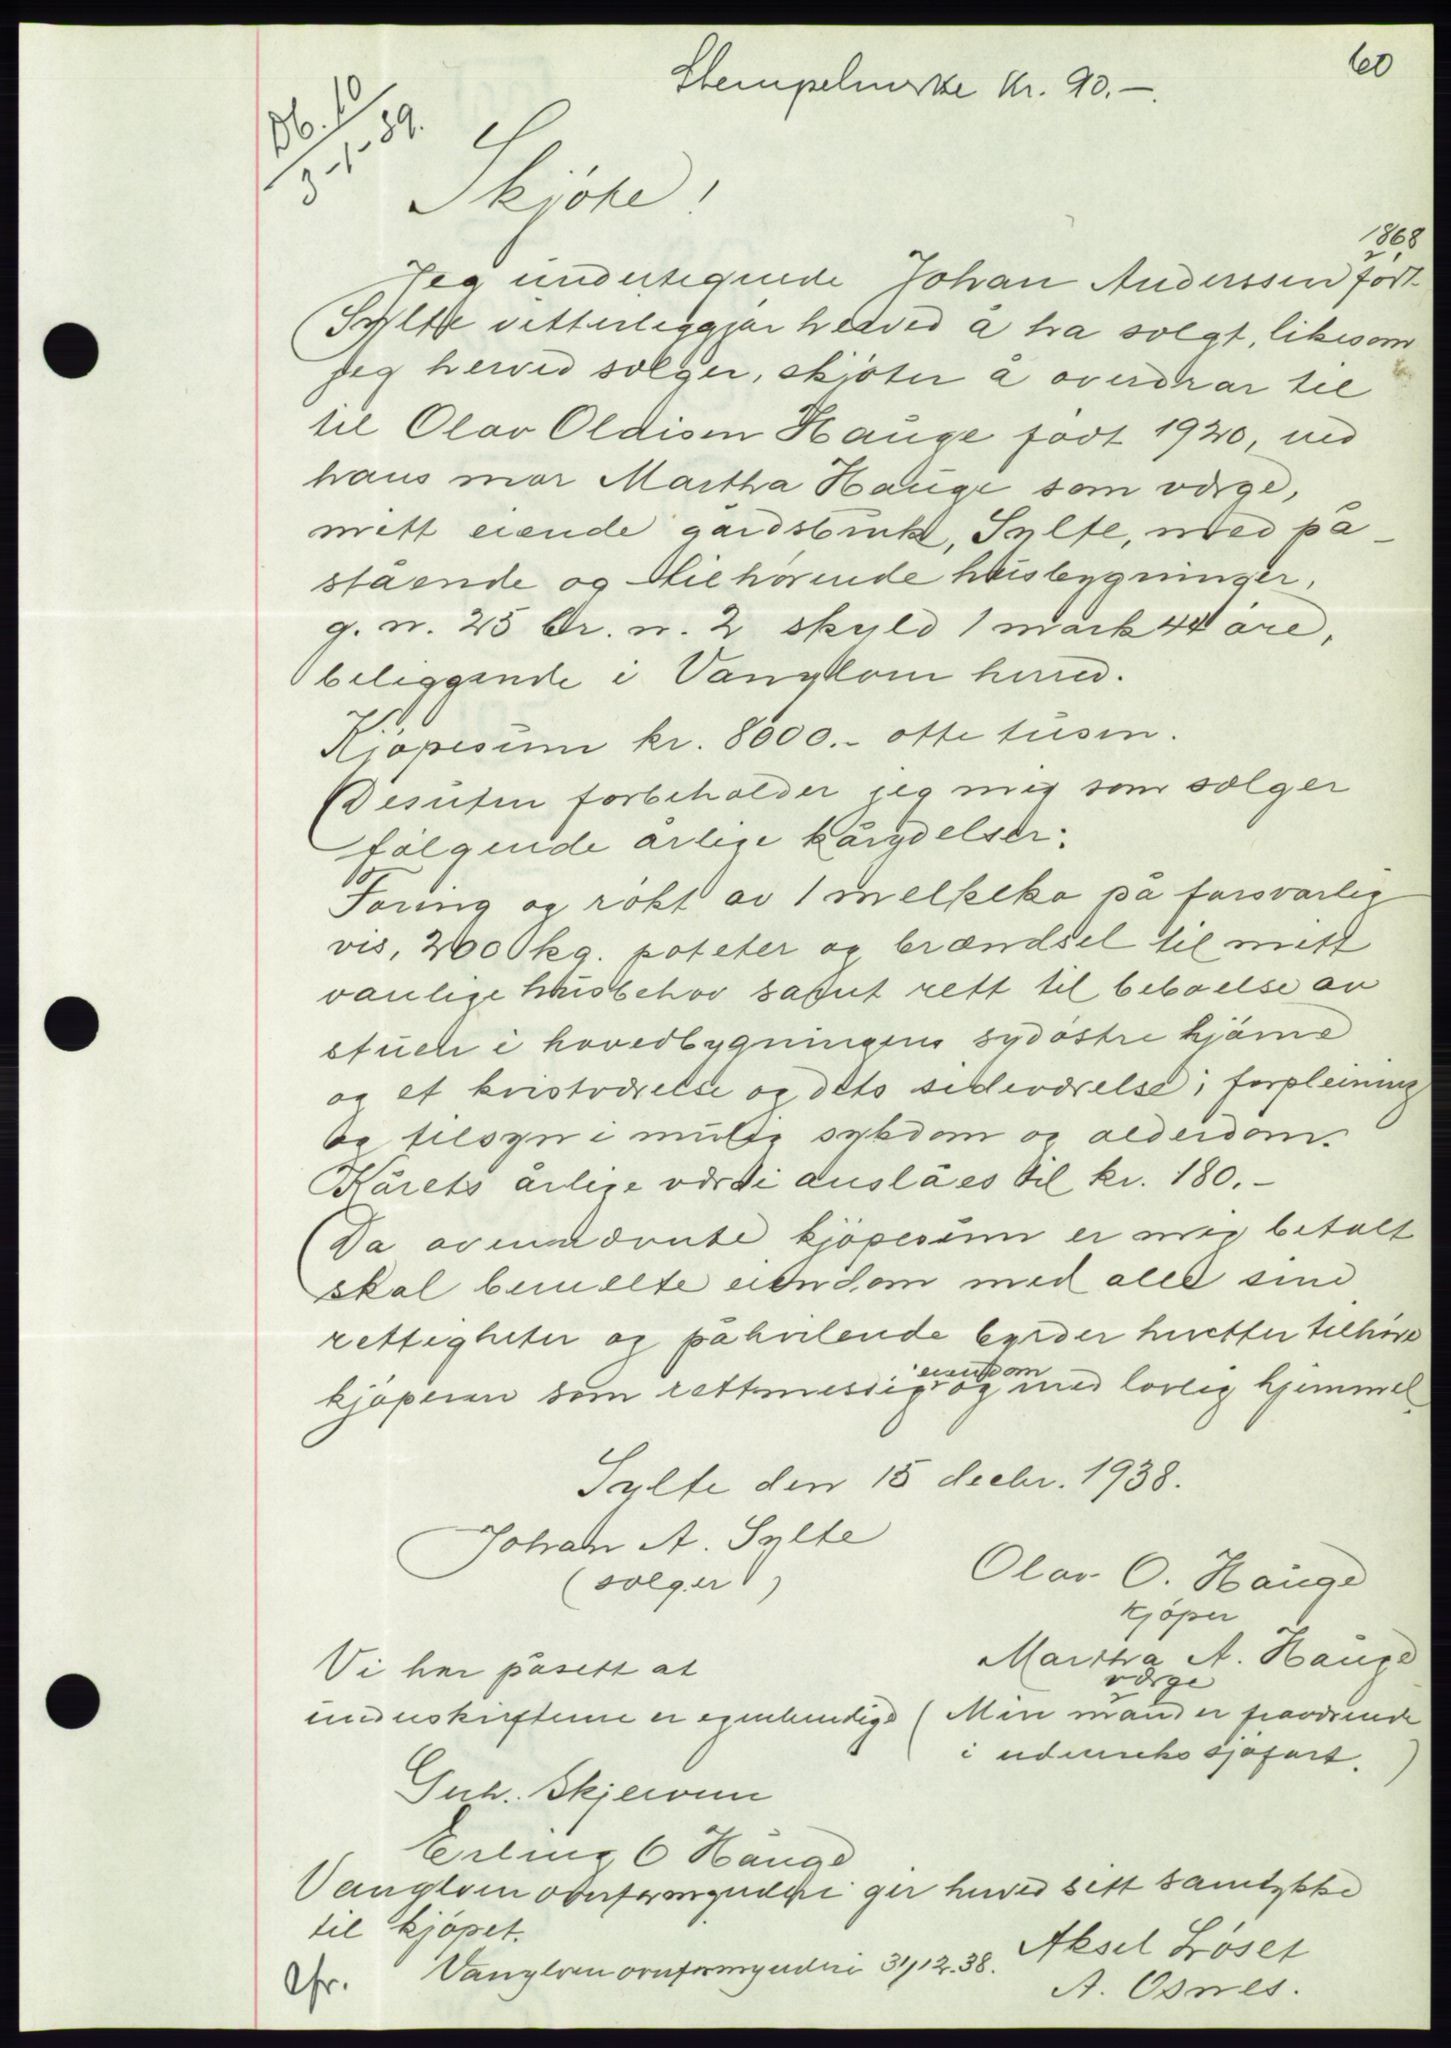 60
Stempelmerke kr. 90.-.
Db. 10
3-1-39.
Skjöte!
1868
Jeg undertegnede Johan Anderssen født
Sylte vitterliggjør herved å ha solgt, likesom
jeg herved selger, skjöter å overdrar til
til Olav Olaisen Hauge født 1920, ved
hans mor Martha Hauge som værge,
mitt eiende gårdsbruk, Sylte, med på-
stående og tilhørende husbygninger,
g. n. 25 br. n. 2 skyld 1 mark 44 øre,
beliggende i Vanylven herred.
Kjøpesum kr. 8000.- otte tusen.
Desuten forbeholder jeg mig som selger
følgende årlige kårydelser:
Foring og røkt av 1 melkeko på forsvarlig
vis, 200 kg. poteter og brændsel til mitt
vanlige husbehov samt rett til beboelse av
stuen i hovedbygningens sydøstre hjørne
og et kvistværelse og dets sideværelse; forpleining
og tilsyn i mulig sykdom og alderdom.
Kårets årlige værdi anslåes til kr. 180.-
Da ovennævnte kjøpesum er mig betalt
skal bemeldte eiendom med alle sine
rettigheter og påhvilende byrder heretter tilhøre
eiendom
kjøperen som rettmessig og med lovlig hjemmel.
Sylte den 15 decbr. 1938.
Johan A. Sylte
(selger)
Olav O. Hauge
kjøper
Martha A. Hauge
værge
Vi har påsett at
underskriftene er egenhendige
(Min mand er fraværende
i udenriks sjøfart.)
Gerh. Skjervum
Erling O Hauge
Vanylven overformynderi gir herved sitt samtykke
til kjøpet.
Vanylven overformynderi 31/12.38.
Aksel Løset
A. Osnes.